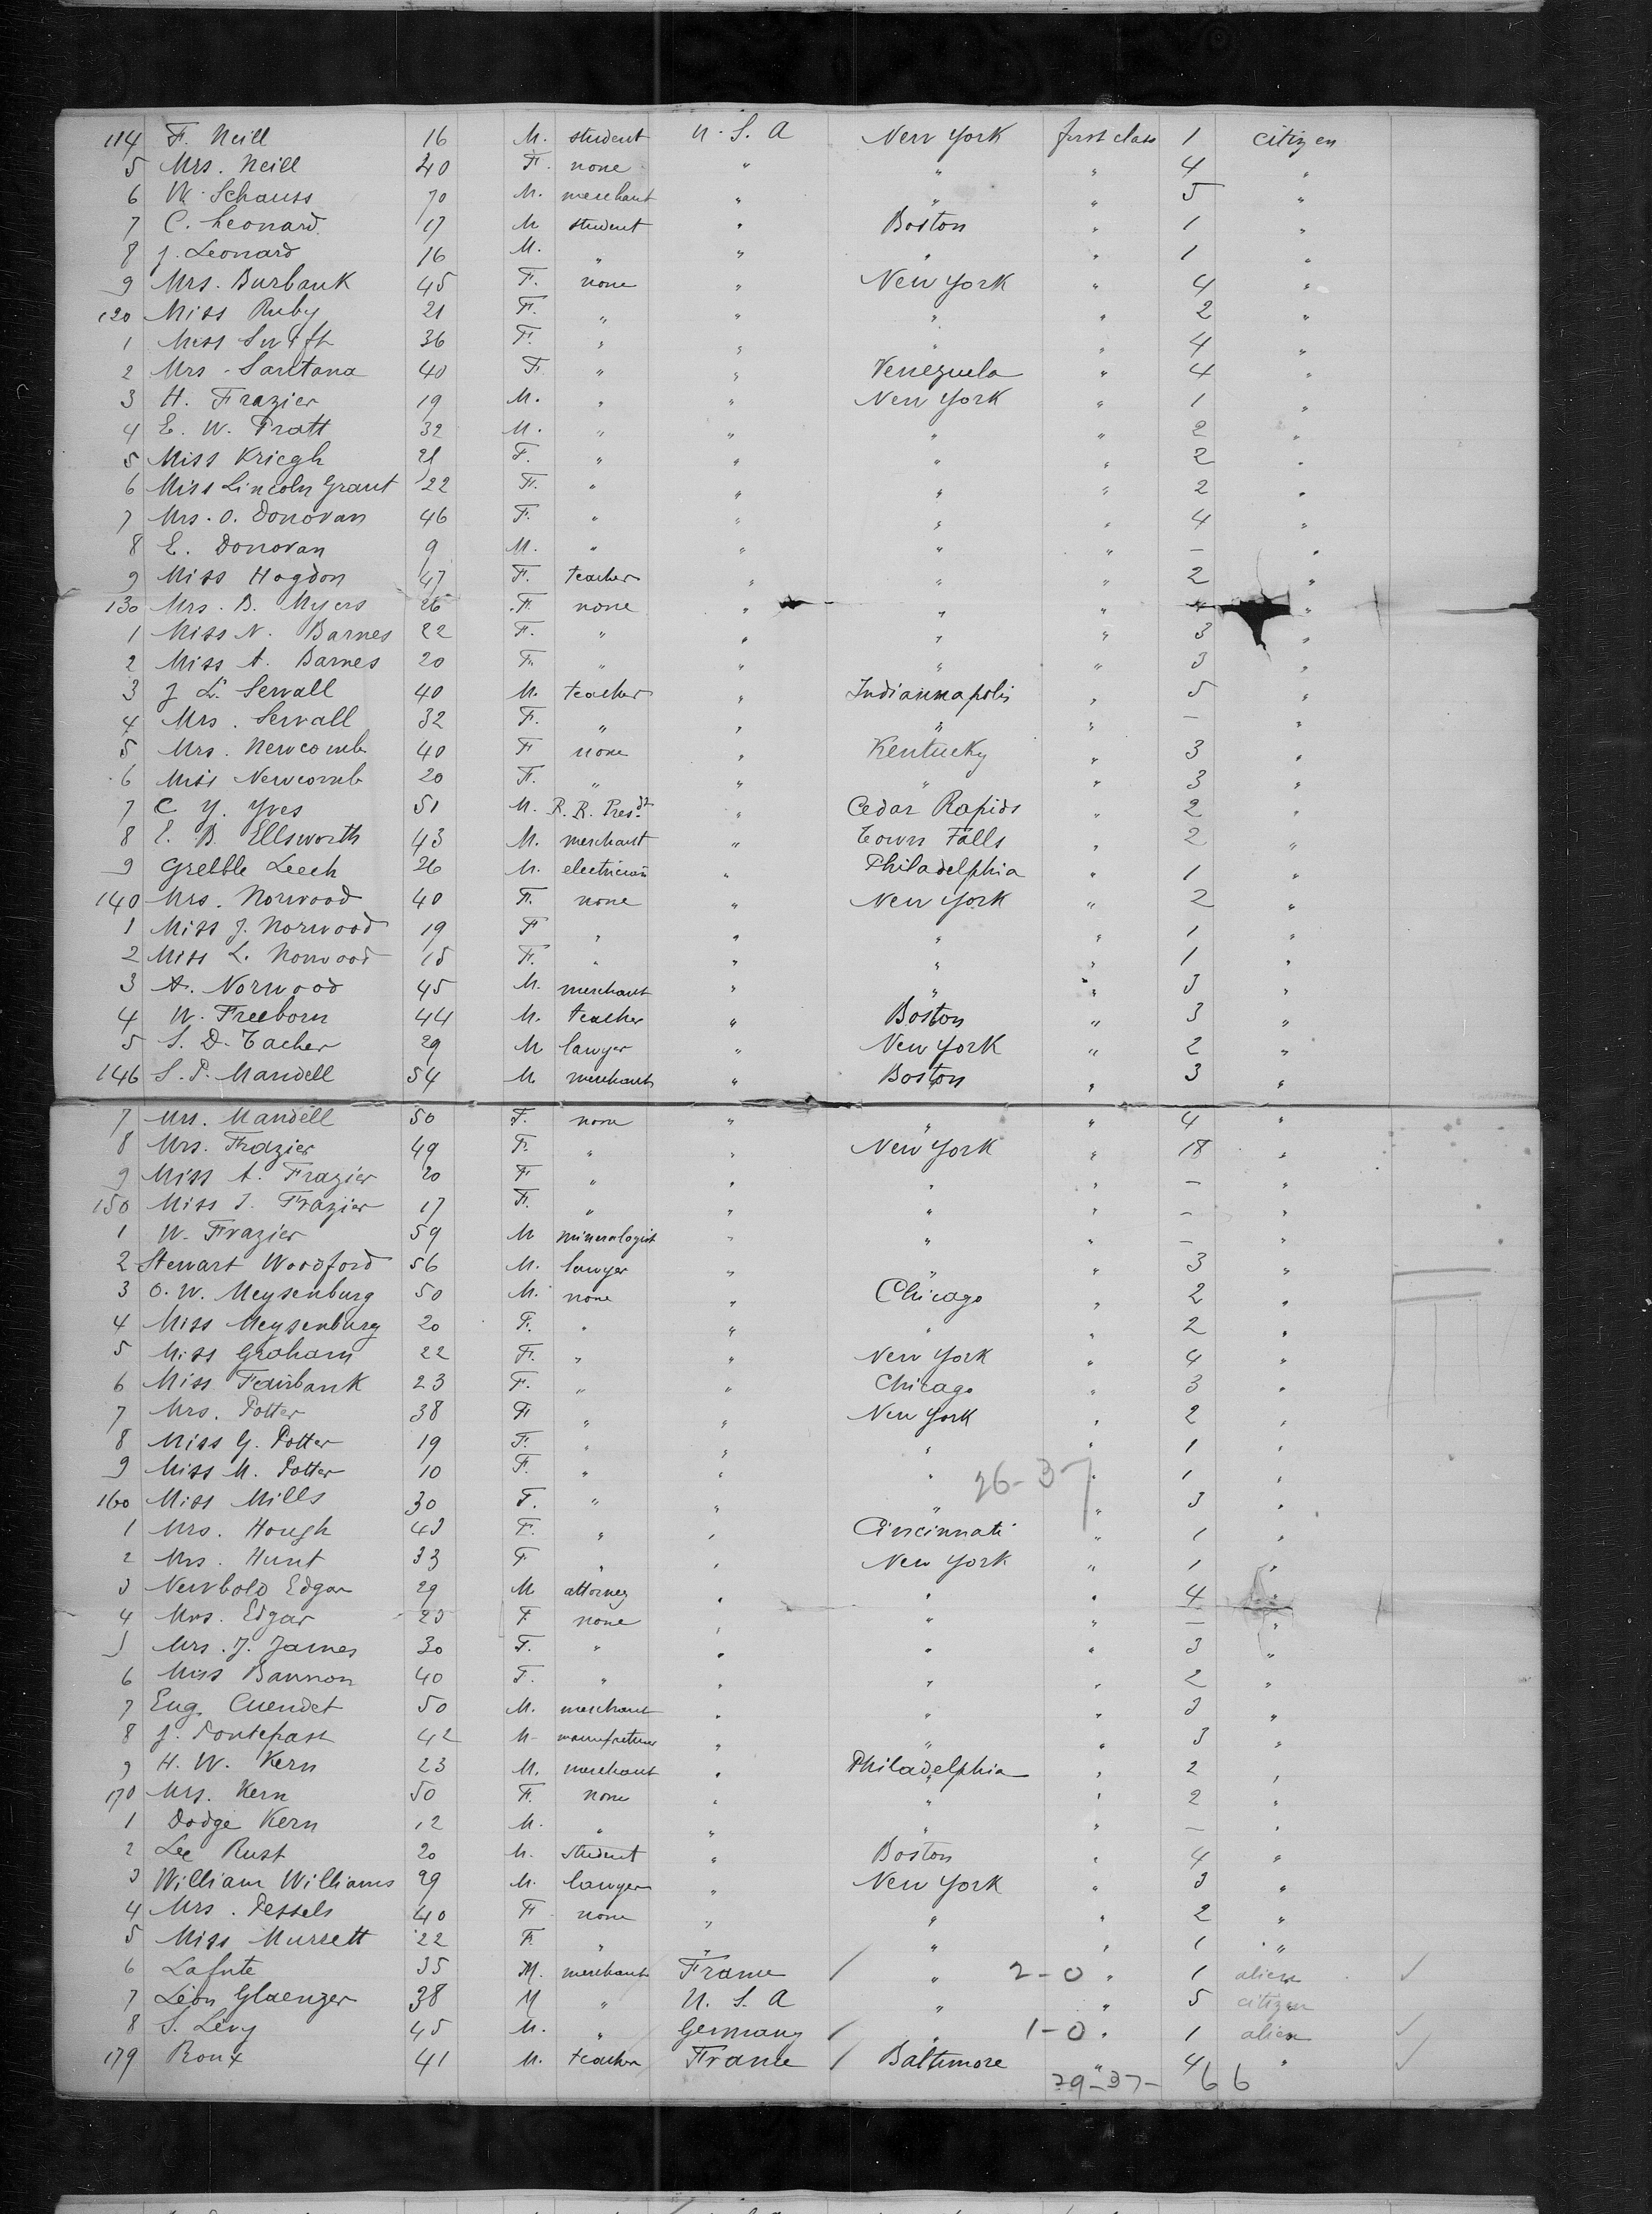 114 F. Neill 16 M. student U. S. A New York first class 1 citizen
5 Mrs. Neill 40 F. none " " " 4 "
6 W. Schauss 70 M. merchant " " " 5 "
7 C. Leonard 17 M student " Boston " 1 "
8 J. Leonard 16 M. " " " " 1 "
9 Mrs. Burbank 45 F. none " New York " 4 "
120 Miss Ruby 21 F. " " " " 2 "
1 Miss Swift 36 F. " " " " 4 "
2 Mrs. Santana 40 F. " " Venezuela " 4 "
3 H. Frazier 19 M. " " New York " 1 "
4 E. W. Pratt 32 M. " " " " 2 "
5 Miss Kriegh 21 F. " " " " 2 "
6 Miss Lincoln Grant 22 F. " " " " 2 "
7 Mrs. O. Donovan 46 F. " " " " 4 "
8 E. Donovan 9 M. " " " " — "
9 Miss Hogdon 47 F. teacher " " " 2 "
130 Mrs. B. Myers 26 F. none " " " "
1 Miss N. Barnes 22 F. " " " " 3 "
2 Miss A. Barnes 20 F. " " " " 3 "
3 J L. Sewall 40 M. teacher " Indiannapolis " 5 "
4 Mrs. Sewall 32 F. " " " " — "
5 Mrs. Newcomb 40 F none " Kentucky " 3 "
6 Miss Newcomb 20 F. " " " " 3 "
7 C. Y. Yves 51 M. R. R. Presdt " Cedar Rapids " 2 "
8 E. B. Ellsworth 43 M. merchant " Town Falls " 2 "
9 Grelble Leech 26 M. electrician " Philadelphia " 1 "
140 Mrs. Norwood 40 F. none " New York " 2 "
1 Miss J. Norwood 19 F " " " " 1 "
2 Miss L. Norwood 15 F. " " " " 1 "
3 A. Norwood 45 M. merchant " " " 3 "
4 W. Freeborn 44 M. teacher " Boston " 3 "
5 S. D. Tacher 29 M lawyer " New York " 2 "
146 S. P. Mandell 54 M merchant " Boston " 3 "
7 Mrs. Mandell 50 F. none " " " 4 "
8 Mrs. Frazier 49 F. " " New York " 18 "
9 Miss A. Frazier 20 F " " " " — "
150 Miss J. Frazier 17 F. " " " " — "
1 W. Frazier 59 M mineralogist " " " — "
2 Stewart Woodford 56 M. lawyer " " " 3 "
3 O. W. Meysenburg 50 M. none " Chicago " 2 "
4 Miss Meysenburg 20 F. " " " " 2 "
5 Miss Graham 22 F. " " New York " 4 "
6 Miss Fairbank 23 F. " " Chicago " 3 "
7 Mrs. Potter 38 F " " New York " 2 "
8 Miss G. Potter 19 F. " " " " 1 "
9 Miss M. Potter 10 F. " " " 26-37 " 1 "
160 Miss Mills 30 F. " " " " 3 "
1 Mrs. Hough 43 F. " " Cincinnati " 1 "
2 Mrs. Hunt 33 F " " New York " 1 "
3 Newbold Edgar 29 M attorney " " " 4 "
4 Mrs. Edgar 23 F none " " " — "
5 Mrs. J. James 30 F. " " " " 3 "
6 Miss Bannon 40 F. " " " " 2 "
7 Eug. Cuendet 50 M. merchant " " " 3 "
8 J. 42 M manufacturer " " " 3 "
9 H. W. Kern 23 M. merchant " Philadelphia " 2 "
170 Mrs. Kern 50 F. none " " " 2 "
1 Dodge Kern 12 M. " " " " — "
2 Lee Rust 20 M. student " Boston " 4 "
3 William Williams 29 M. lawyer " New York " 3 "
4 Mrs. Pessels 40 F none " " " 2 "
5 Miss Mursett 22 F. " " " " 1 "
6 Lafute 35 M. merchant France / " 2-0 " 1 alien ✓
7 Léon Glaenzer 38 M " U. S. A " " 5 citizen
8 S. Lévy 45 M. " Germany / " 1-0 " 1 alien ✓
179 Roux 41 M. teacher France / Baltimore " 4 " ✓
29-37- 66